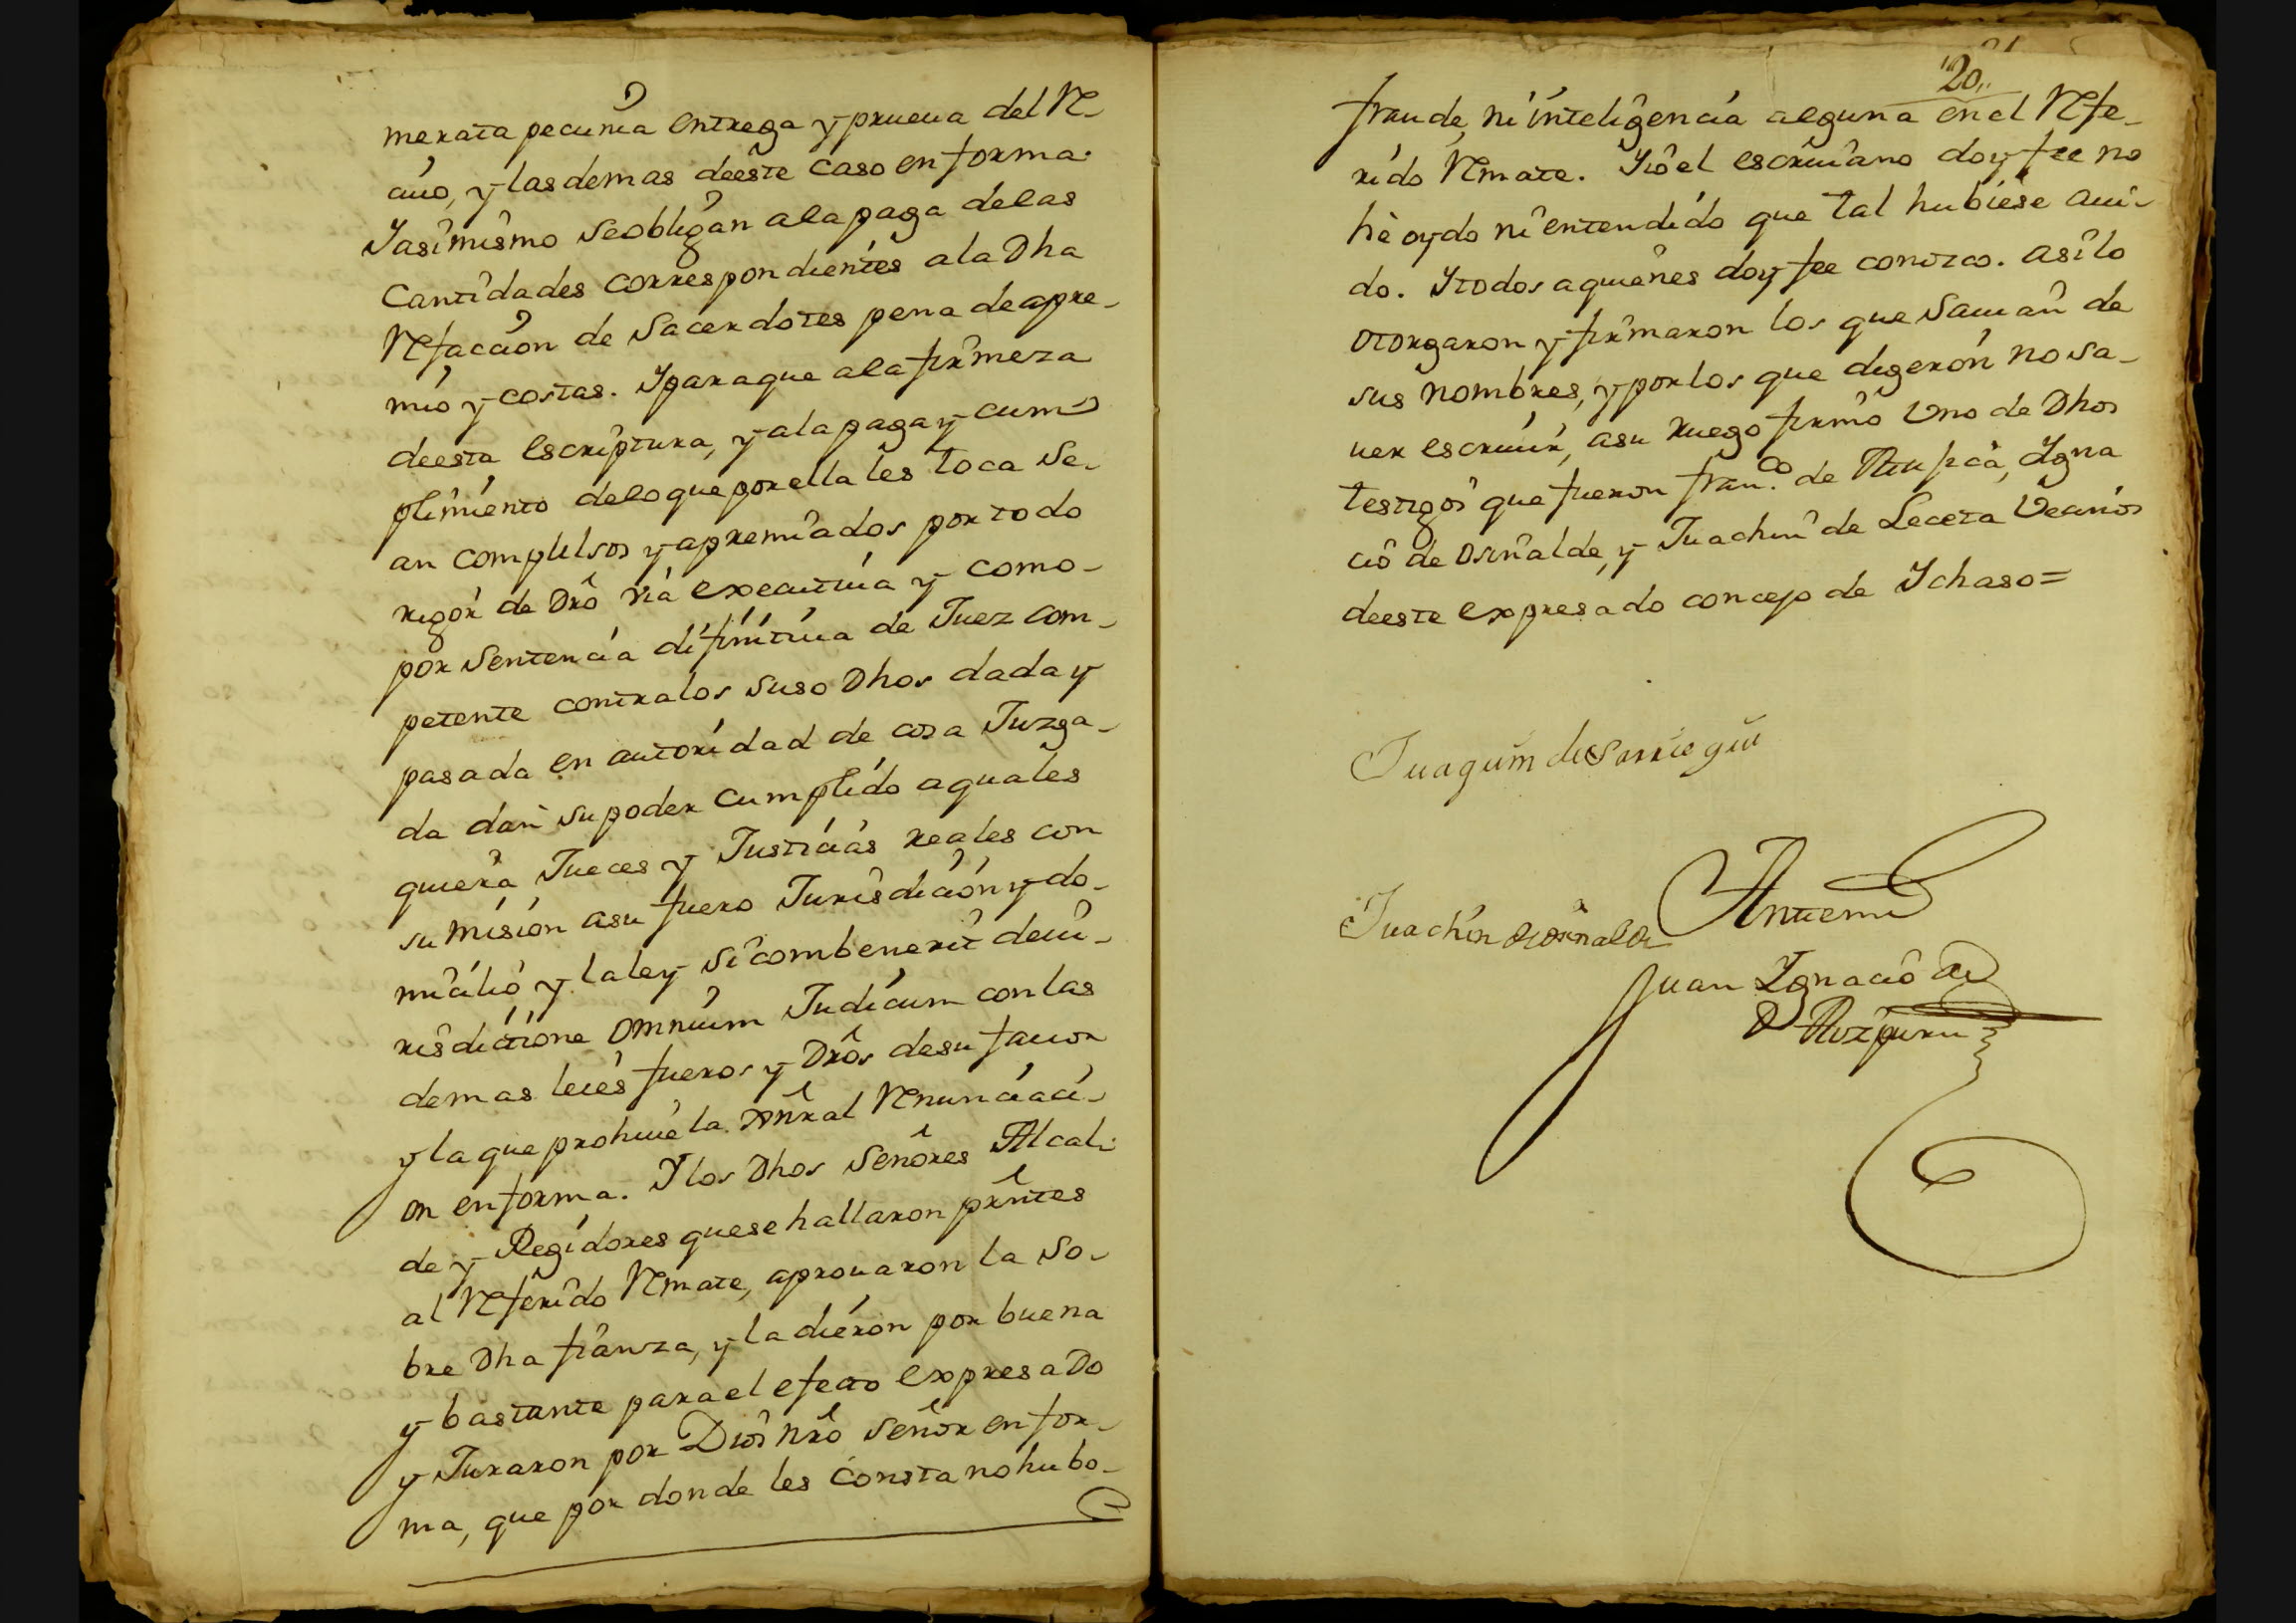 merata pecunia entrega y prueua del Re-
ciuo, y las demas deeste caso en forma.
Yasimismo seobligan ala paga delas
Cantidades correspondientes ala Dha
Refaccion de Sacerdotes pena de apre-
mio y costas. Yparaque ala firmeza
deesta escriptura, y ala paga y cum
plimiento deloque por ella les toca Se-
an compulsos y apremiados por todo
rigor de Dro via executiua y como-
por Sentencia difinitiua de Juez com-
petente contra los suso Dhos dada y
pasada en autoridad de cosa Juzga-
da dan su poder cumplido a quales
quiera Jueces y Justicias reales con
sumision asu fuero Jurisdicion y do-
micilio y la ley sicombenerit deiu-
risdictione omnium Judicum con las
demas leies fueros y Dros desu fauor
y la que prohiue la Gñral Renunciaci-
on en forma. Y los Dhos Señores Alcal-
de y Regidores que se hallaron prntes
al Referido Remate, aprouaron la so-
bre Dha fianza, y la dieron por buena
y bastante para el efecto expresado
y Juraron por Dios nro Señor en for-
ma, que por donde les consta no hubo-
21
"20"
fraude, ni inteligencia alguna en el Refe-
rido Remate. Yo el escriuano doy fee no
he oydo ni entendido que tal hubiese aui-
do. Ytodos a quienes doy fee conozco. asi lo
otorgaron y firmaron los que Sauian de
sus nombres, y por los que digeron no sa-
uer escriuir, asu ruego firmo Vno de Dhos
testigos que fueron Fran.co de Ygna
cio de Osinalde, y Juachin de Leceta Vecinos
deeste expresado concejo de Ychaso=
Juaquin de Sarriegui
Juachin de Osinalde
Antemi
Juan Ignacio de
Aizpuru